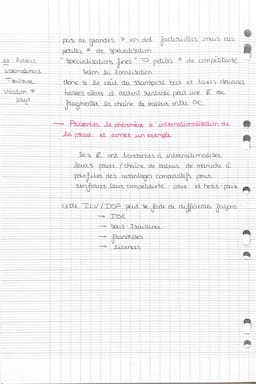 pas de grandes * en dot factorielles mais des
petites * de spécialisation
"spécialisations fines" → petites * de compétitivité
selon la localisation
donc si le coût du transport bas et taxes douanes
basses alors il devient rentable pour une R de
fragmenter sa chaîne de valeur entre
→ Présenter le phénomène d'internationalisation de
la prod et donner un exemple
Les R ont tendances à internationaliser
leurs prod / chaîne de valeur de manière à
profiter des avantages comparatifs pour
renforcer leur compétitivité - prix et hors-prix
cette peut se faire de différentes façons
→ IDE
→ sous-traitance
→ franchises
→ licences